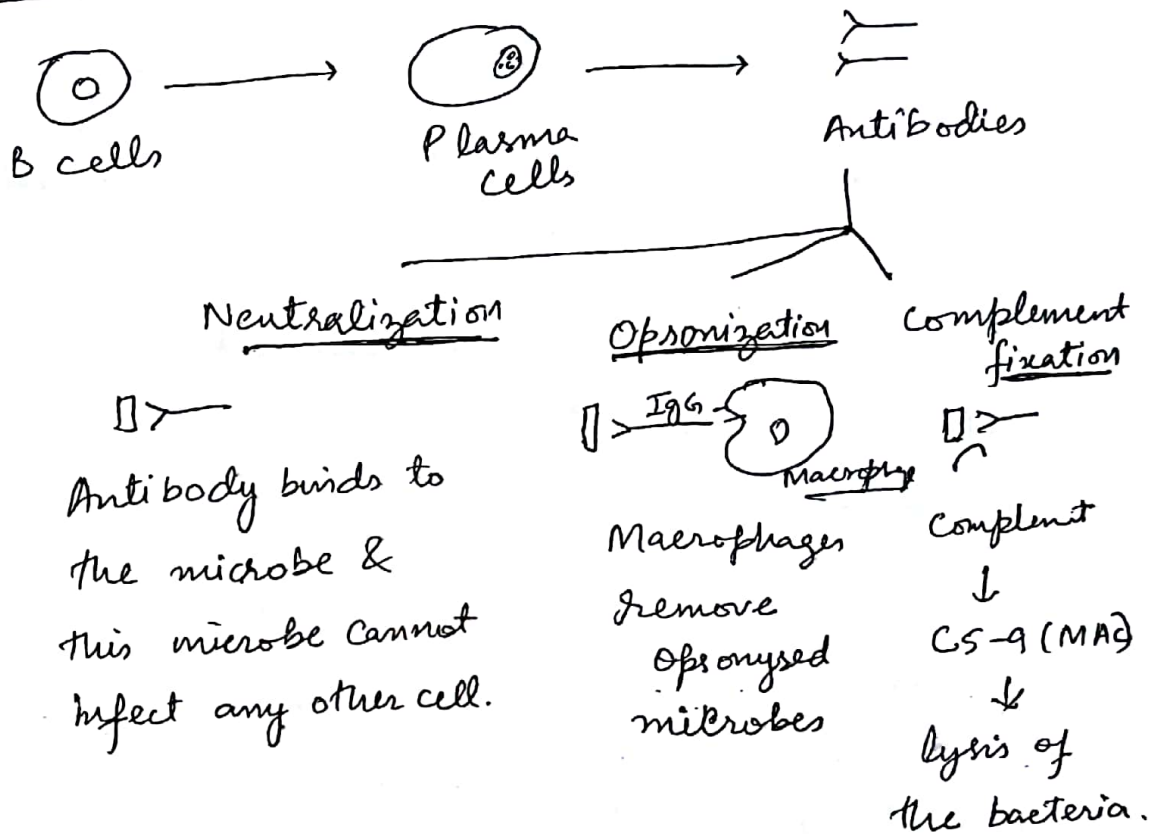 B cells
Plasma
cells
Antibodies
Neutralization
Antibody binds to
the microbe &
this microbe cannot
infect any other cell.
Opsonization
IgG
Macrophge
Macrophages
remove
opsonysed
microbes
Complement
fixation
Complent
↓
C5-9 (MAC)
↓
lysis of
the bacteria.